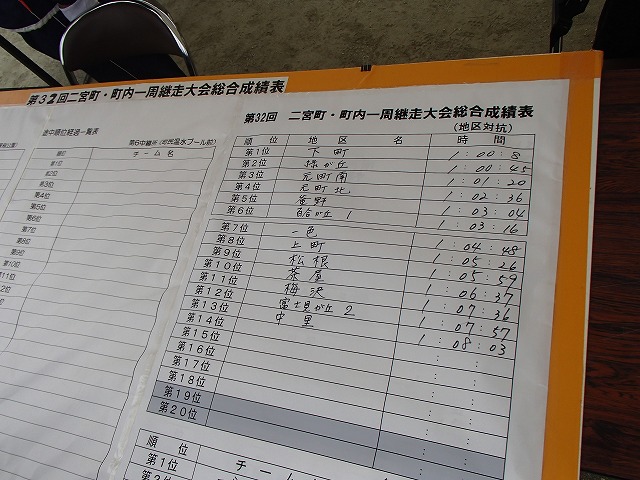 第32回二宮町・町内一周継走大会総合成績表
途中順位経過一覧表
第6中継所(町民温水プール前)
順位 チーム名
第1位
第2位
第3位
第4位
第5位
第6位
第7位
第8位
第9位
第10位
第11位
第32回 二宮町・町内一周継走大会総合成績表
(地区対抗)
順位 地区名 時間
第1位 下町 1:00:8
第2位 緑が丘 1:00:45
第3位 元町南 1:01:20
第4位 元町北 1:02:36
第5位 1:03:04
第6位 百合が丘1 1:03:16
第7位 一色 1:04:48
第8位 上町 1:05:26
第9位 松根 1:05:59
第10位 茶屋 1:06:37
第11位 梅沢 1:07:36
第12位 富士見が丘2 1:07:57
第13位 中里 1:08:03
第14位 : :
第15位 : :
第16位 : :
第17位 : :
第18位 : :
第19位 : :
第20位 : :
順位 チーム
第1位
第2位